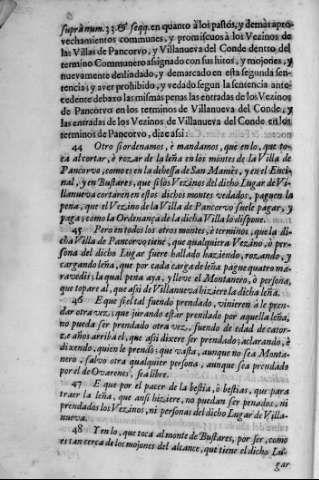 supra num. 33. & seqq. en quanto à los pastos, y demàs apro-
vechamientos communes, y promiscuos à los Vezinos de
las Villas de Pancorvo, y Villanueva del Conde dentro del
termino Communero asignado con sus hitos, y mojones, y
nuevamente deslindado, y demarcado en esta segunda sen-
tencia; y aver prohibido, y vedado segun la sentencia ante-
cedente debaxo las mismas penas las entradas de los Vezinos
de Pancorvo en los terminos de Villanueva del Conde, y
las entradas de los Vezinos de Villanueva del Conde en los
terminos de Pancorvo, dize assi:
44 Otro si ordenamos, è mandamos, que en lo, que to-
ca al cortar, è rozar de la leña en los montes de la Villa de
Pancorvo, como es en la debessa de San Mamès, y en el Enci-
nal, y en Bustares, que si los Vezinos del dicho Lugar de Vi-
llanueva cortaren en estos dichos montes vedados, paguen la
pena, que el Vezino de la Villa de Pancorvo suele pagar, y
paga; como la Ordenança de la dicha Villa lo dispone.
45 Pero en todos los otros montes, è terminos, que la di-
cha Villa de Pancorvo tiene, que qualquiera Vezino, ò per-
sona del dicho Lugar fuere hallado haziendo, rozando, y
cargando leña, que por cada carga de leña pague quatro ma-
ravedis; la qual pena aya, y lleve el Montanero, ò persona,
que topare al, que assi de Villanueva hiziere la dicha leña.
46 E que si el tal fuendo prendado, vinieren à le pren-
dar otra vez, que jurando estar prendado por aquella leña,
no pueda ser prendado otra vez, fuendo de edad de cator-
ze años arriba el, que assi dixere ser prendado; aclarando, è
dixendo, quien le prendò; que vasta, aunque no sea Monta-
nero, salvo otra qualquier persona, aunque sea prendado
por el de Ovarenes, sea libre.
47 E que por el pacer de la bestia, è bestias, que para
traer la leña, que ansi hiziere, no puedan ser penados, ni
prendados los Vezinos, ni personas del dicho Lugar de Villa-
nueva.
48 Y en lo, que toca al monte de Bustares, por ser, como
es tan cerca de los mojones del alcance, que tiene el dicho Lu-
gar